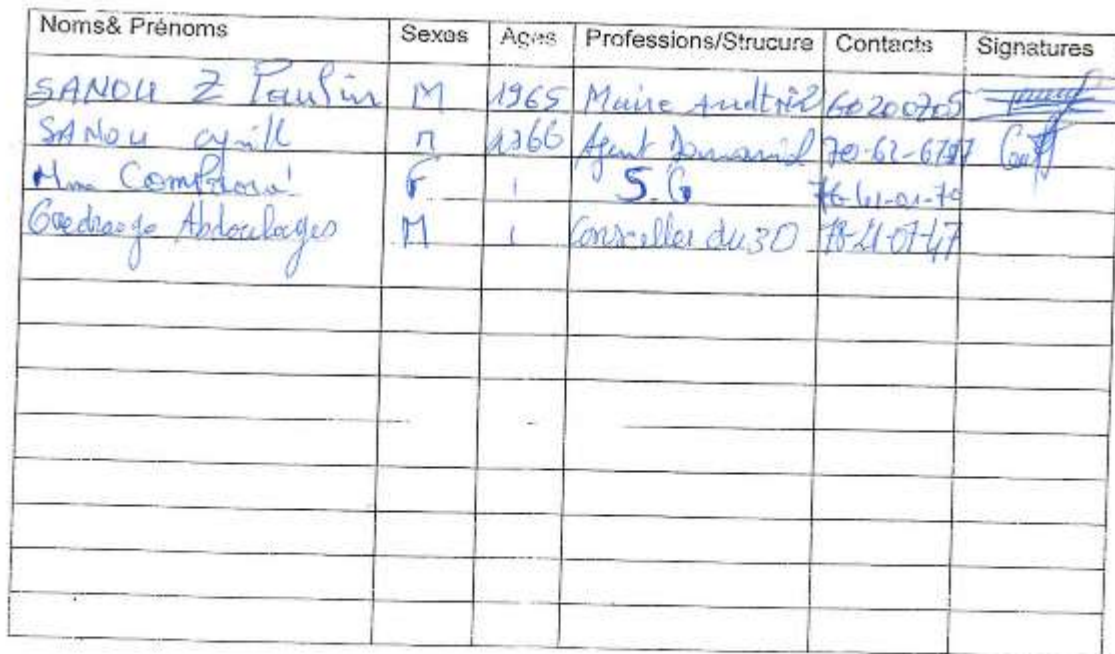 Noms& Prénoms Sexes Ages Professions/Strucure Contacts Signatures
SANOU Z Paulin M 1965 Maire 60200705
SANOU cyrill M 1966 Agent Domanial 70-62-67
Mme Compaoré F S.G 76-41-01-70
Ouedraogo Abdoulayes M Conseiller du 3D 78-21-07-47